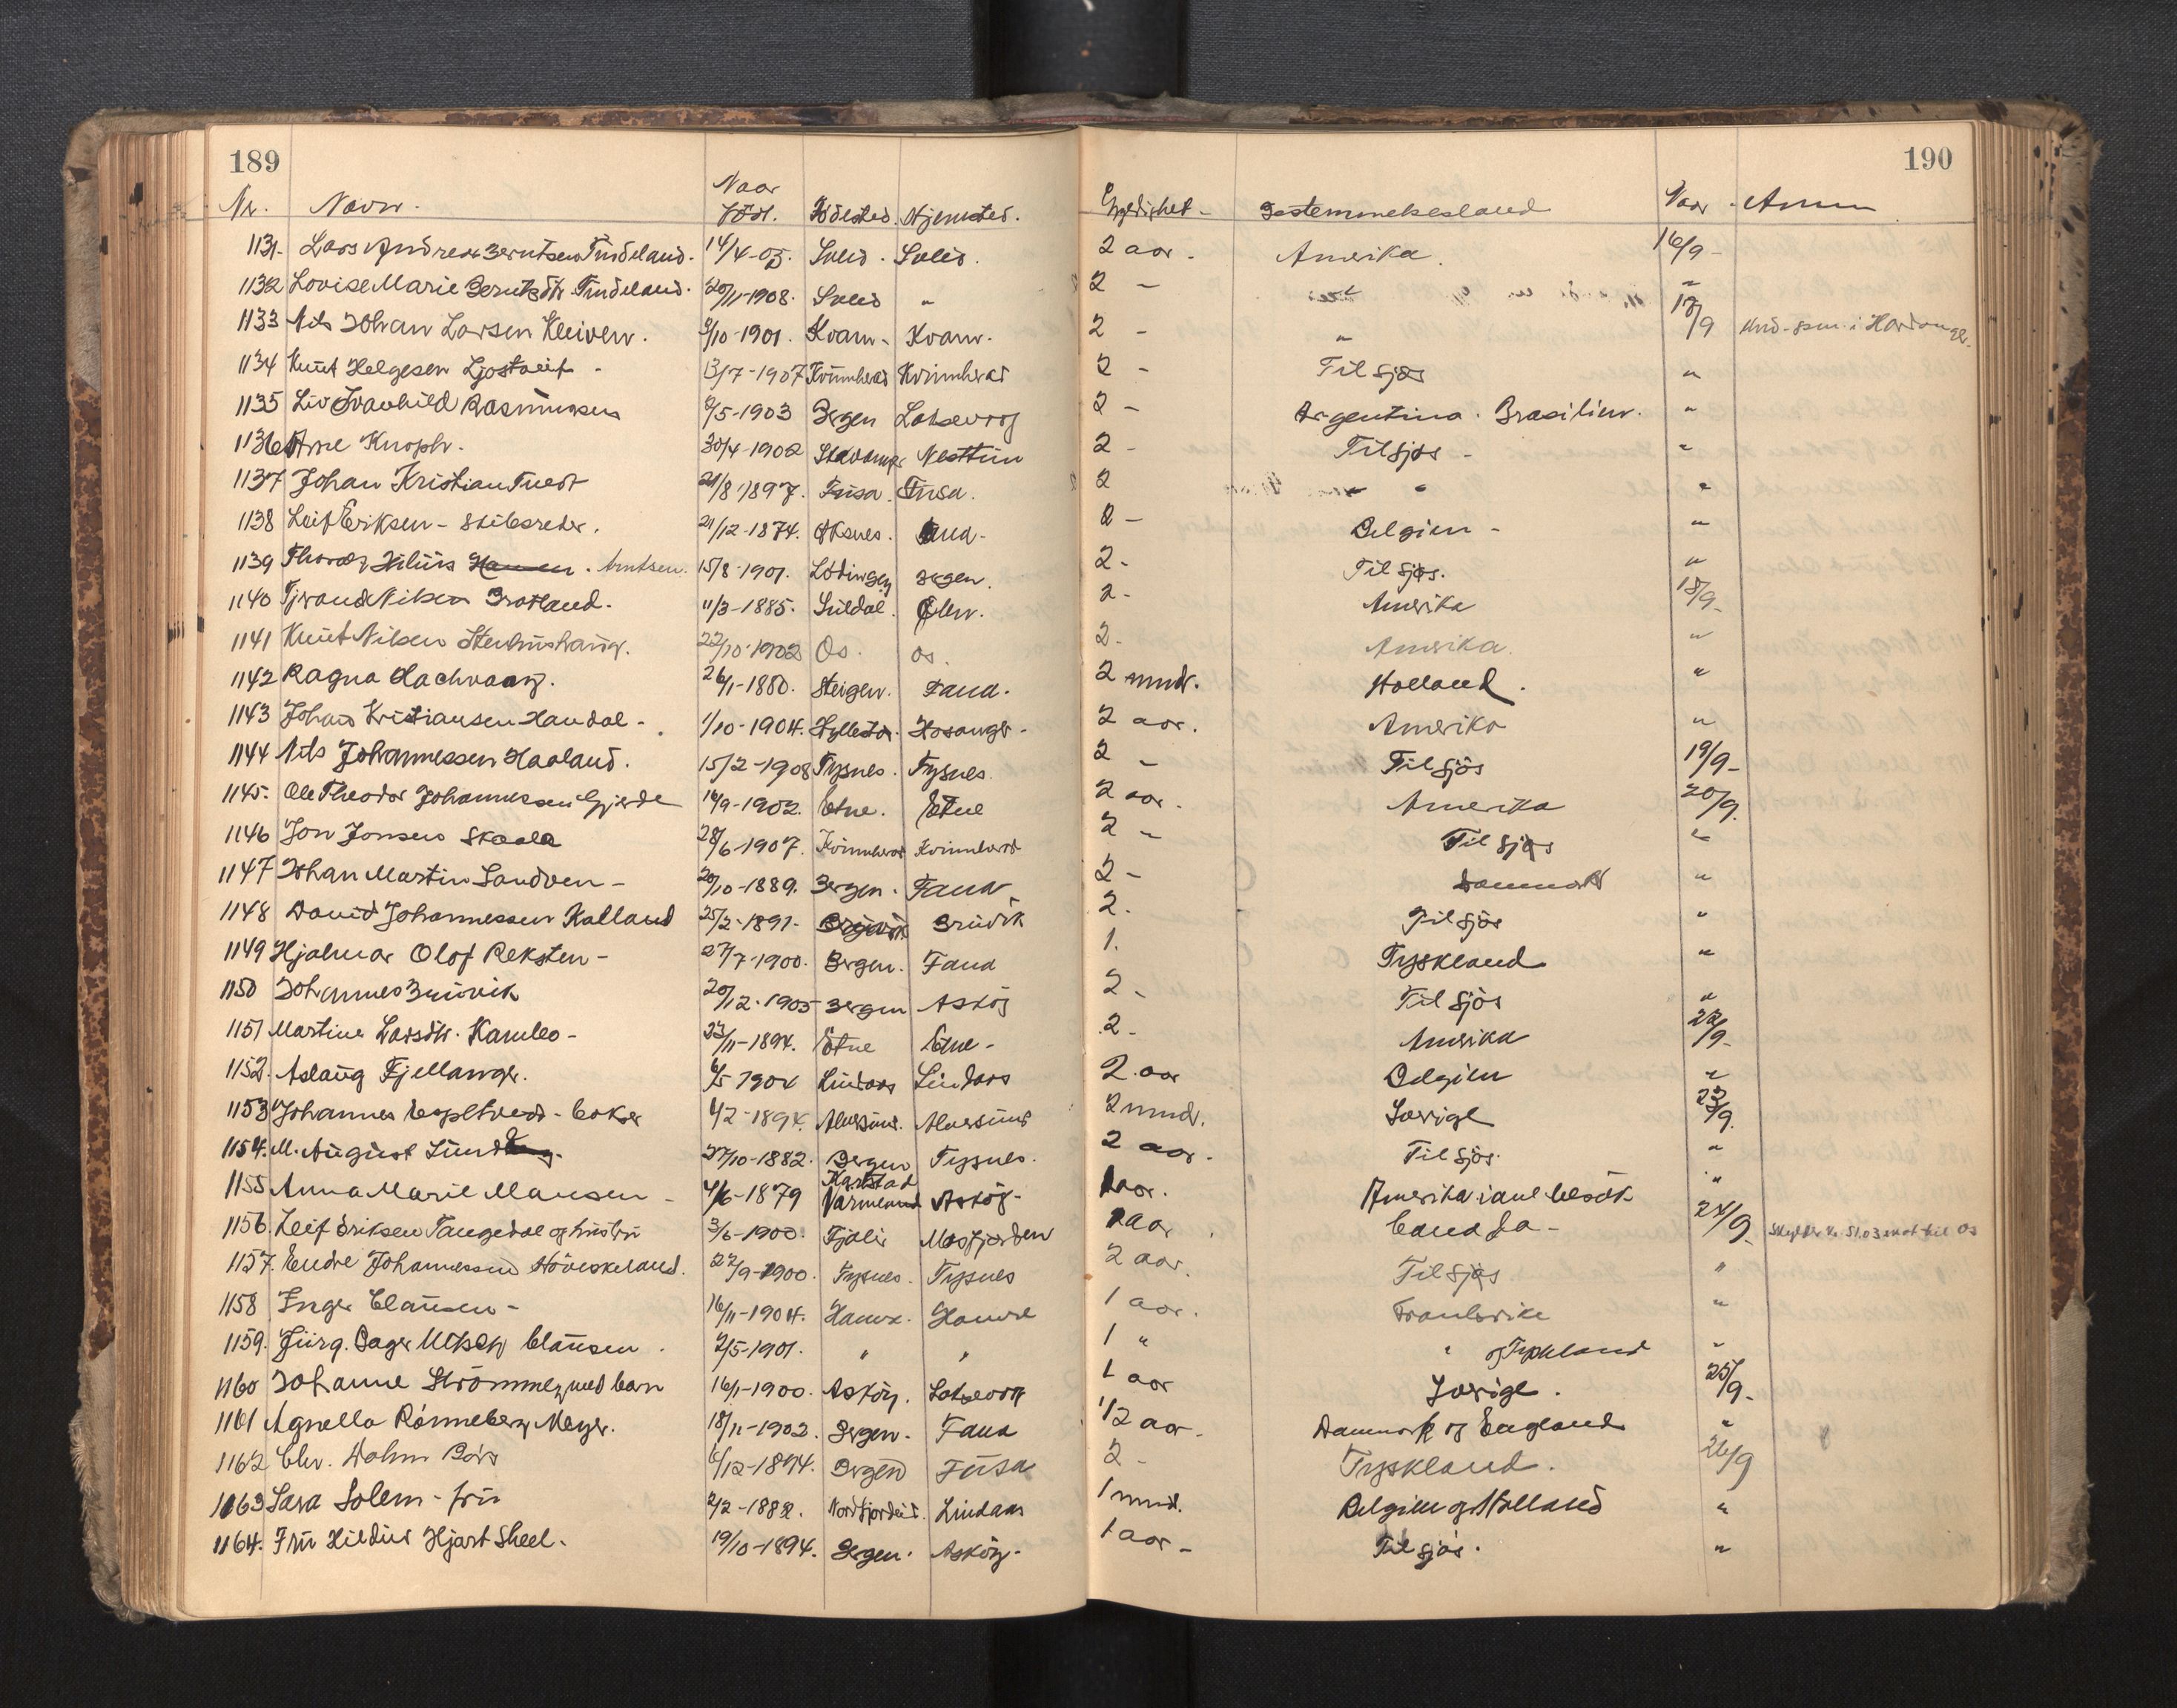 189
190
Nr. Navn. Naar född. Födested. Hjemsted. Gyldighet - Bestemmelsesland Naar Anm
1131. Lars Andreas Berntsen Tindeland. 14/4-05. Sveio. Sveio. 2 aar - Amerika. 16/9 -
1132 Lovise Marie Berntsdtr. Tindeland. 20/11-1908. Sveio " 2 - " "
1133 Nils Johan Larsen Kleiven. 9/10-1901. Kvam - Kvam. 2 - " 18/9 i Hardanger.
1134 Knut Helgesen Ljostveit - 13/7-1907 Kvinnherad Kvinnherad 2 - Til sjøs "
1135 Liv Svanhild Rasmussen 9/5-1903 Bergen Laksevaag 2 - Argentina. Brasilien. "
1136 Arne Knoph. 30/4-1902 Stavanger Nesttun 2 - Til sjøs - "
1137 Johan Kristian Tvedt 21/8-1897. Fusa. Fusa. 2 " "
1138 Leif Eriksen - Skibsreder. 21/12-1874. Øksnes. Fana - 2 - Belgien - "
1139 Thoralf Hilürs Hansen. Arntsen. 15/8-1901. Lødingen Bergen. 2 - Til sjøs. "
1140 Tjerand Nilsen Bratland. 11/3-1885. Suldal. Ølen. 2 - Amerika 18/9 -
1141 Knut Nilsen Stenhushaug. 22/10-1902 Os. Os. 2. Amerika. "
1142 Ragna Hachvaag. 26/1-1880. Steigen. Fana. 2 mndr. Holland. "
1143 Johan Kristiansen Handal -. 1/10-1904. Hyllestad. Hosanger - 2 aar. Amerika "
1144 Nils Johannessen Haaland. 15/2-1908 Tysnes. Tysnes. 2 - Til sjøs 19/9 -
1145. Ole Theodor Johannessen Gjerde 14/9-1902. Etne. Etne 2 aar. Amerika 20/9.
1146 Jon Jonsen Skaala 28/6-1907. Kvinnherad Kvinnherad 2 - Til sjøs "
1147 Johan Martin Sandven - 20/10-1889. Bergen. Fana 2 - Danmark "
1148 David Johannessen Kalland 25/2-1891. Bruvik Bruvik 2. Til sjøs "
1149 Hjalmar Olof Reksten - 27/7-1900. Bergen. Fana 1. Tyskland "
1150 Johannes Bruvik 20/12-1905 Bergen Askøy 2 - Til sjøs "
1151 Martine Larsdtr. Kambo - 23/11-1894. Etne Etne - 2 - Amerika 22/9 -
1152. Aslaug Fjellanger. 6/5 1904 Lindaas Lindaas 2 aar Belgien "
1153 Johannes - Baker 4/2-1894. Alversund. Alversund 2 mndr. Sverige 23/9.
1154. M. August Lund 27/10-1882. Bergen Tysnes. 2 aar. Til sjøs. "
1155 Anna Marie Mansen - 4/6-1879 Karlstad Värmland Askøy - 1 aar. Amerika i anl besøk "
1156. Leif Eriksen Tangedal og hustru 3/6-1900. Fjaler Masfjorden 1 aar Canada - 24/9 - Skylder kr. 51.03 til Os
1157. Endre Johannessen Høviskeland. 22/9-1900. Tysnes. Tysnes 2 aar. Til sjøs "
1158 Inger Clausen - 16/11-1904. Hamre. Hamre 1 aar. Frankrike "
1159. Jürg. Dager Clausen. 2/5-1901. " " 1 " " og Tyskland "
1160 Johanne Strømmen med barn 16/1-1900. Askøy. Laksevaag 1 aar Sverige. 25/9 -
1161 Agnella Rønneberg Meyer. 18/11-1902. Bergen - Fana 1/2 aar - Danmark og England "
1162 Chr. Dahm Børs 6/12-1894. Bergen Fusa 2 - Tyskland. 26/9
1163 Sara Solem - fru 2/2-1882. Nordfjordeid. Lindaas 1 mnd. Belgien og Holland "
1164. Fru Hildur Hjort Skeel. 19/10-1894. Bergen. Askøy. 1 aar - Til sjøs. "